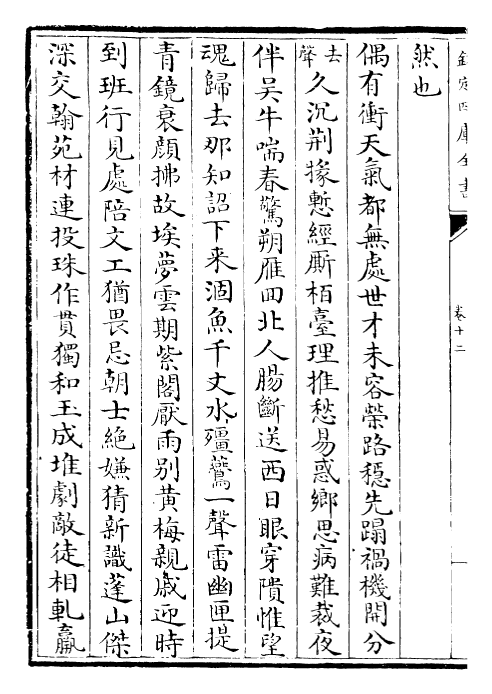 欽定四庫全書
卷十二
然也
偶有衝天氣都無處世才未容榮路穩先蹋禍機開分
去聲久沉荆掾慙經厠栢臺理推愁易惑鄉思病難裁夜
伴吴牛喘春驚朔雁回北人腸斷送西日眼穿隤惟望
魂歸去那知詔下来涸魚千丈水殭鷰一聲雷幽匣提
青鏡衰顔拂故埃夢雲期紫閣厭雨别黄梅親戚迎時
到班行見處陪文工猶畏忌朝士絶嫌猜新識蓬山傑
深交翰苑材連投珠作貫獨和玉成堆劇敵徒相軋羸